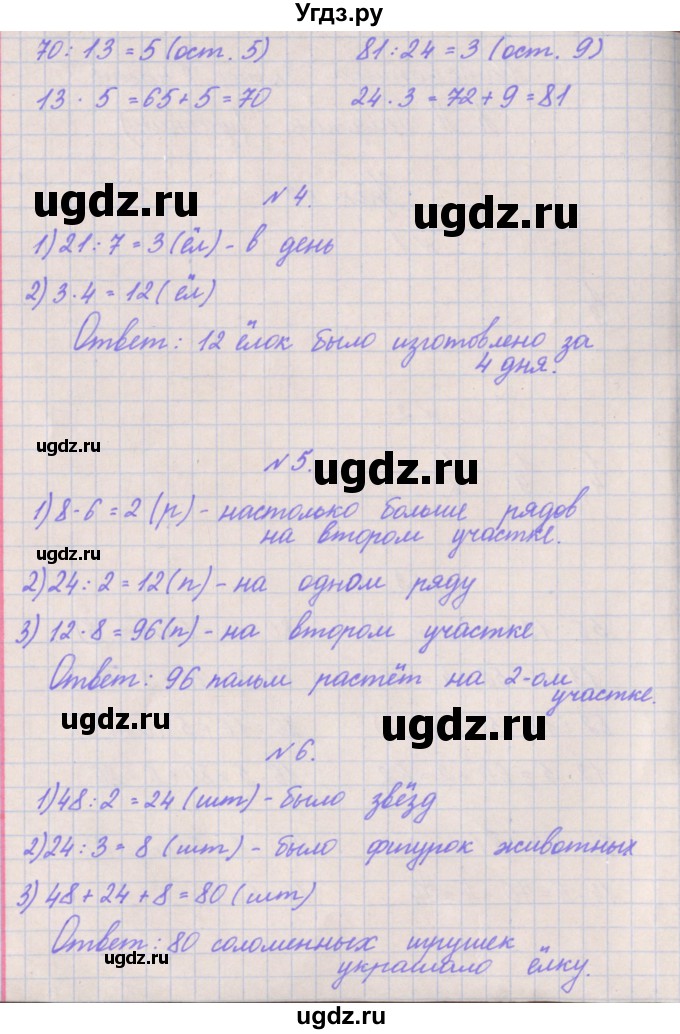 Угдз.ру
70 : 13 = 5 (ост. 5) 81 : 24 = 3 (ост. 9)
13 · 5 = 65 + 5 = 70 24 · 3 = 72 + 9 = 81
ugdz.ru ugdz.ru
N 4.
1) 21 : 7 = 3 (ёл) - в день
2) 3 · 4 = 12 (ёл)
Ответ: 12 ёлок было изготовлено за
4 дня.
ugdz.ru
ugdz.ru
N 5.
1) 8 - 6 = 2 (р) - настолько больше рядов
на втором участке.
ugdz.ru
2) 24 : 2 = 12 (п) - на одном ряду
3) 12 · 8 = 96 (п) - на втором участке
Ответ: 96 пальм растёт на 2-ом
участке.
ugdz.ru ugdz.ru
N 6.
1) 48 : 2 = 24 (шт) - было звёзд
2) 24 : 3 = 8 (шт) - было фигурок животных
3) 48 + 24 + 8 = 80 (шт)
Ответ: 80 соломенных игрушек
украшало ёлку.
ugdz.ru
ugdz.ru